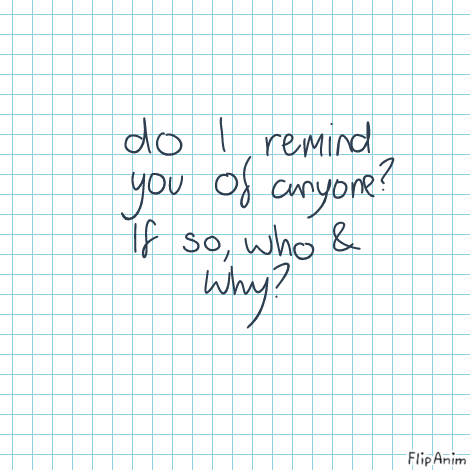 do I remind
you of anyone?
If so, who &
why?
FlipAnim